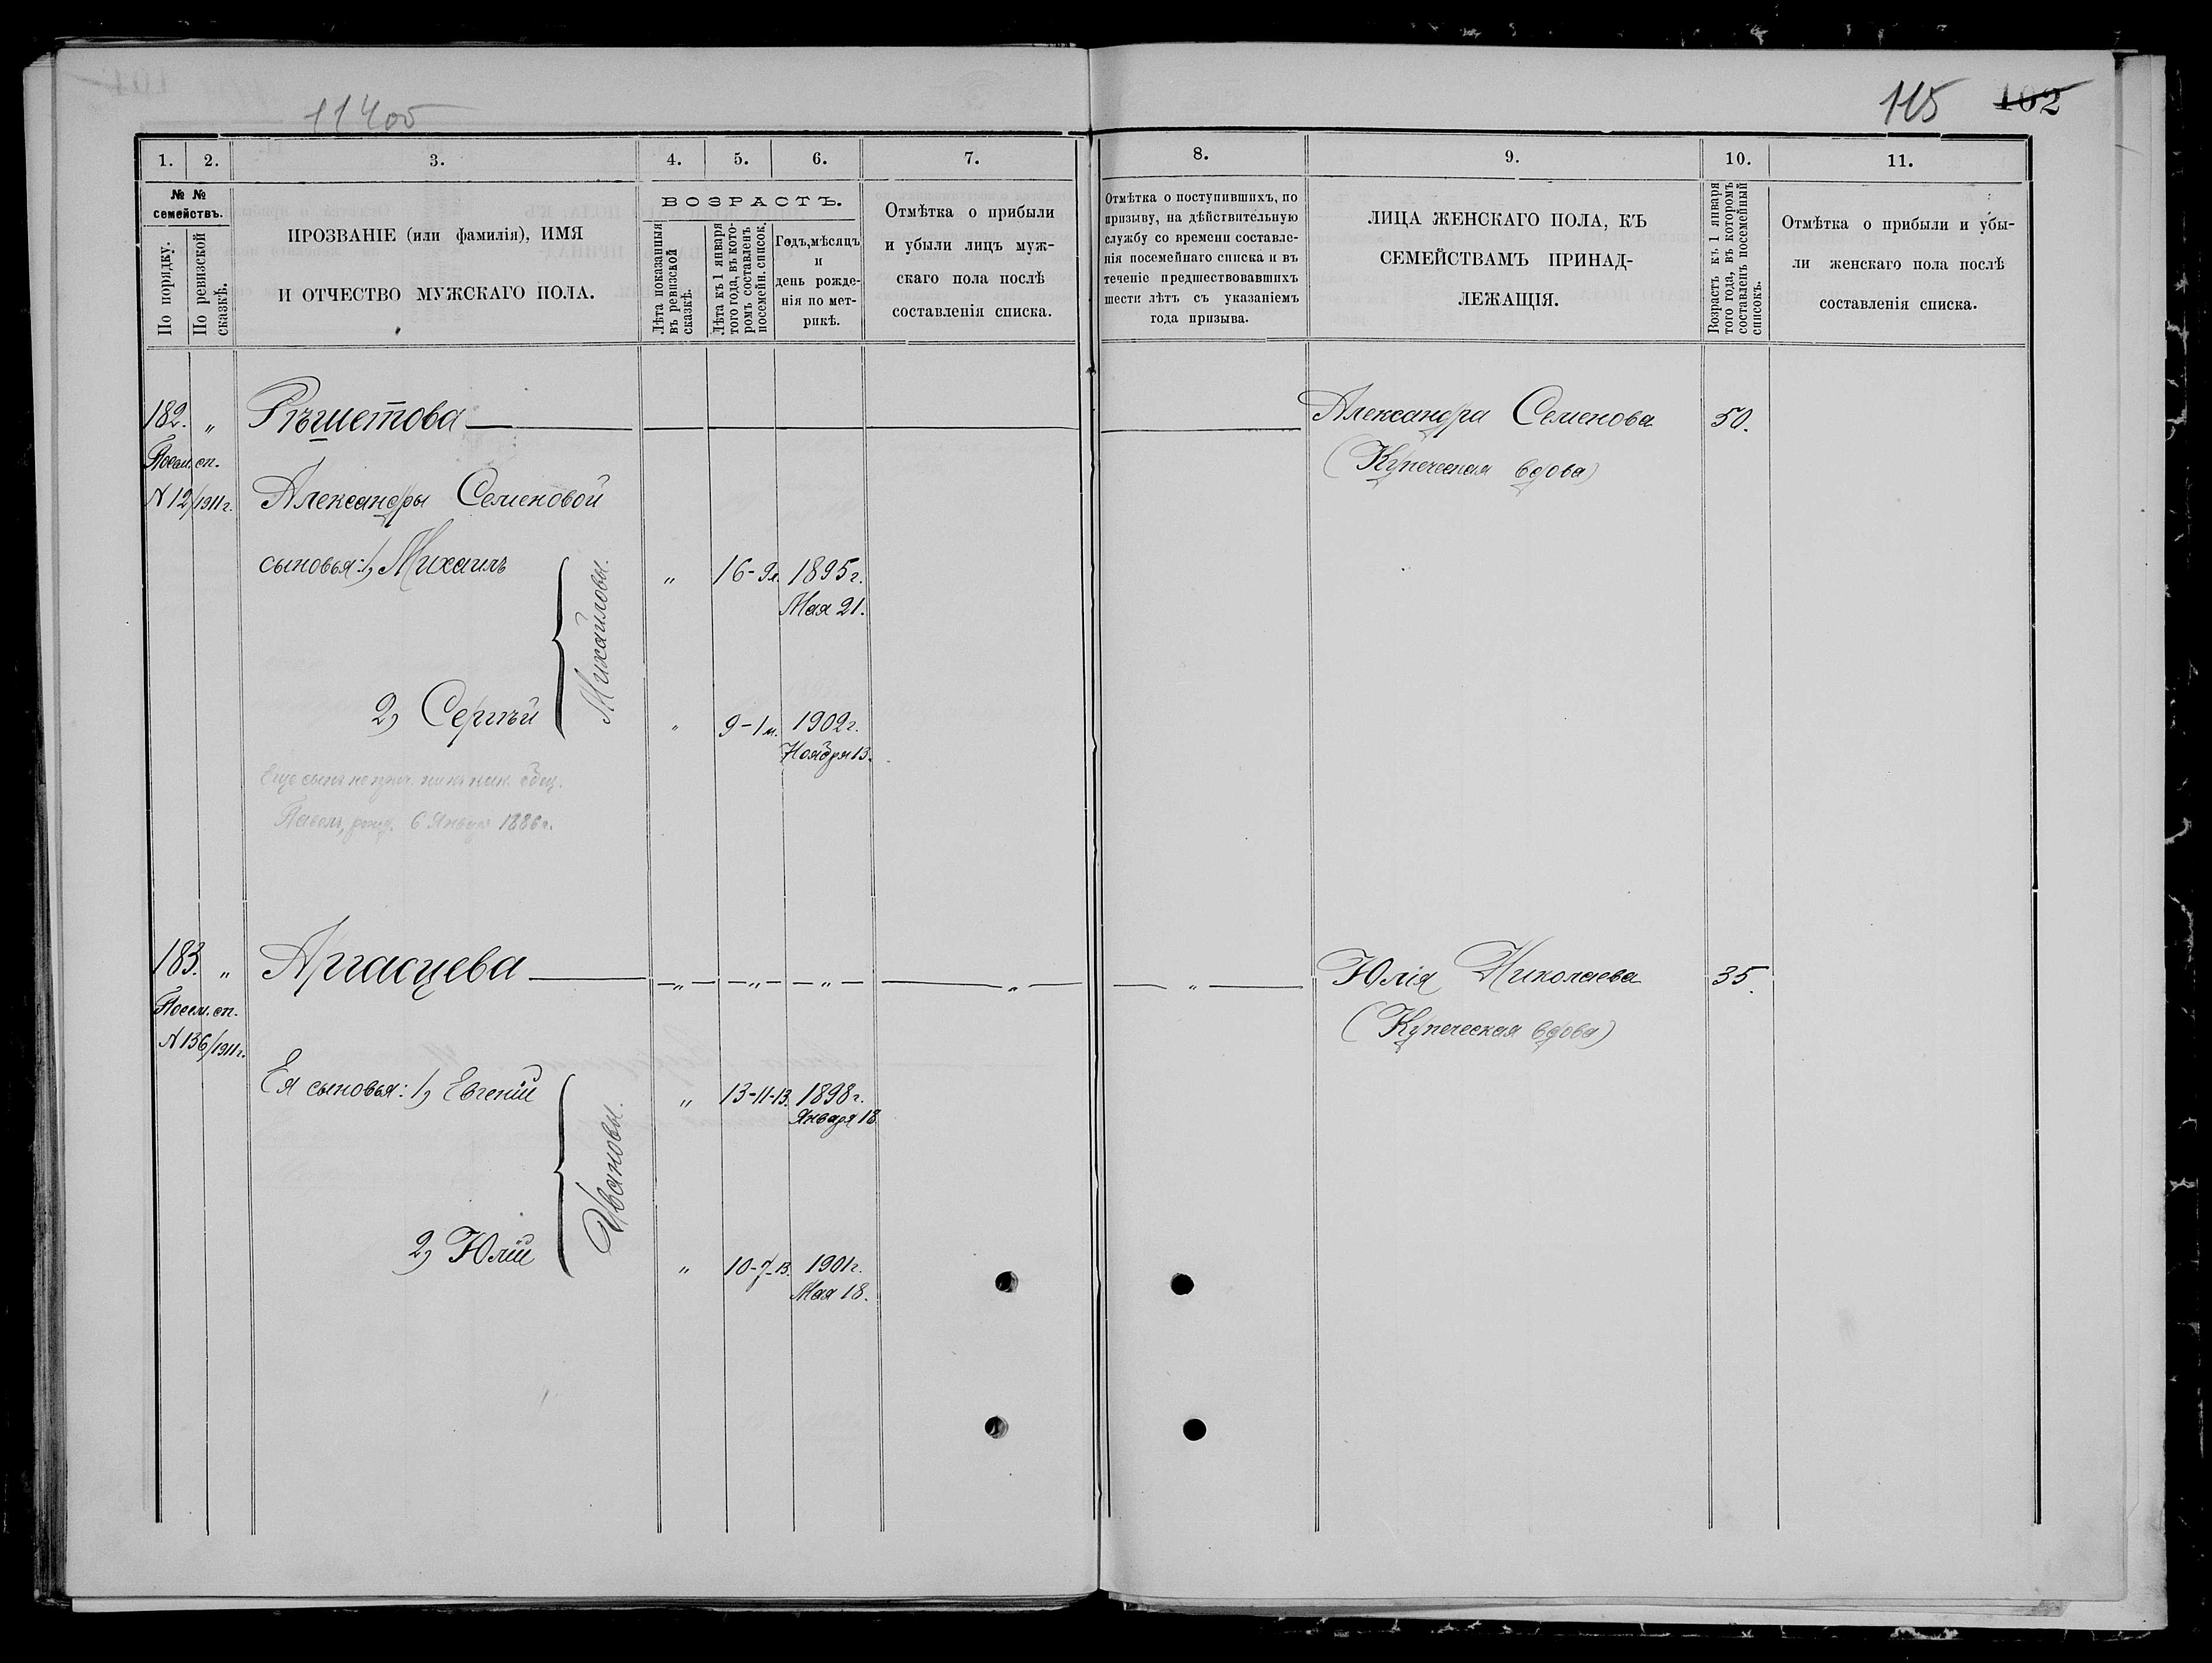 114об
115 102
1. 2. 3. 4. 5. 6. 7. 8. 9. 10. 11.
№ №
семействъ.
По порядку.
По ревизской
сказкѣ.
ПРОЗВАНІЕ (или фамилія), ИМЯ
И ОТЧЕСТВО МУЖСКАГО ПОЛА.
ВОЗРАСТЪ.
Лѣта показанныя
въ ревизской
сказкѣ.
Лѣта къ 1 января
того года, въ кото-
ромъ составленъ
посемейн. список.
Годъ, мѣсяцъ
и
день рожде-
нія по мет-
рикѣ.
Отмѣтка о прибыли
и убыли лицъ муж-
скаго пола послѣ
составленія списка.
Отмѣтка о поступившихъ, по
призыву, на дѣйствительную
службу со времени составле-
нія посемейнаго списка и въ
теченіе предшествовавшихъ
шести лѣтъ съ указаніемъ
года призыва.
ЛИЦА ЖЕНСКАГО ПОЛА, КЪ
СЕМЕЙСТВАМЪ ПРИНАД-
ЛЕЖАЩІЯ.
Возрастъ къ 1 января
того года, въ которомъ
составленъ посемейный
списокъ.
Отмѣтка о прибыли и убы-
ли женскаго пола послѣ
составленія списка.
182. „ Рѣшетова — Александра Семенова 50.
Посем. сп. (Купеческая вдова)
№ 12/1911г. Александры Семеновой
сыновья: 1, Михаилъ „ 16- 1895г.
Мая 21.
Михайловы.
2, Сергѣй „ 9-1м. 1902г.
Ноября 13.
Еще сынъ не прич. ни къ как. общ.
Павелъ, рожд. 6 Января 1886г.
183. „ Аргасцева — „ — „ — „ — „ — „ — Юлія Николаева 35.
Посем. сп. (Купеческая вдова)
№ 136/1911г.
Ея сыновья: 1, Евгеній „ 13-11-13. 1898г.
Января 18
Ивановы.
2, Юлій „ 10-7-13. 1901г.
Мая 18.